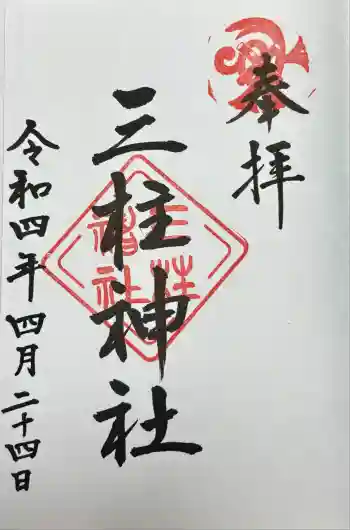 奉拝
三柱神社
三柱
神社
令和四年四月二十四日